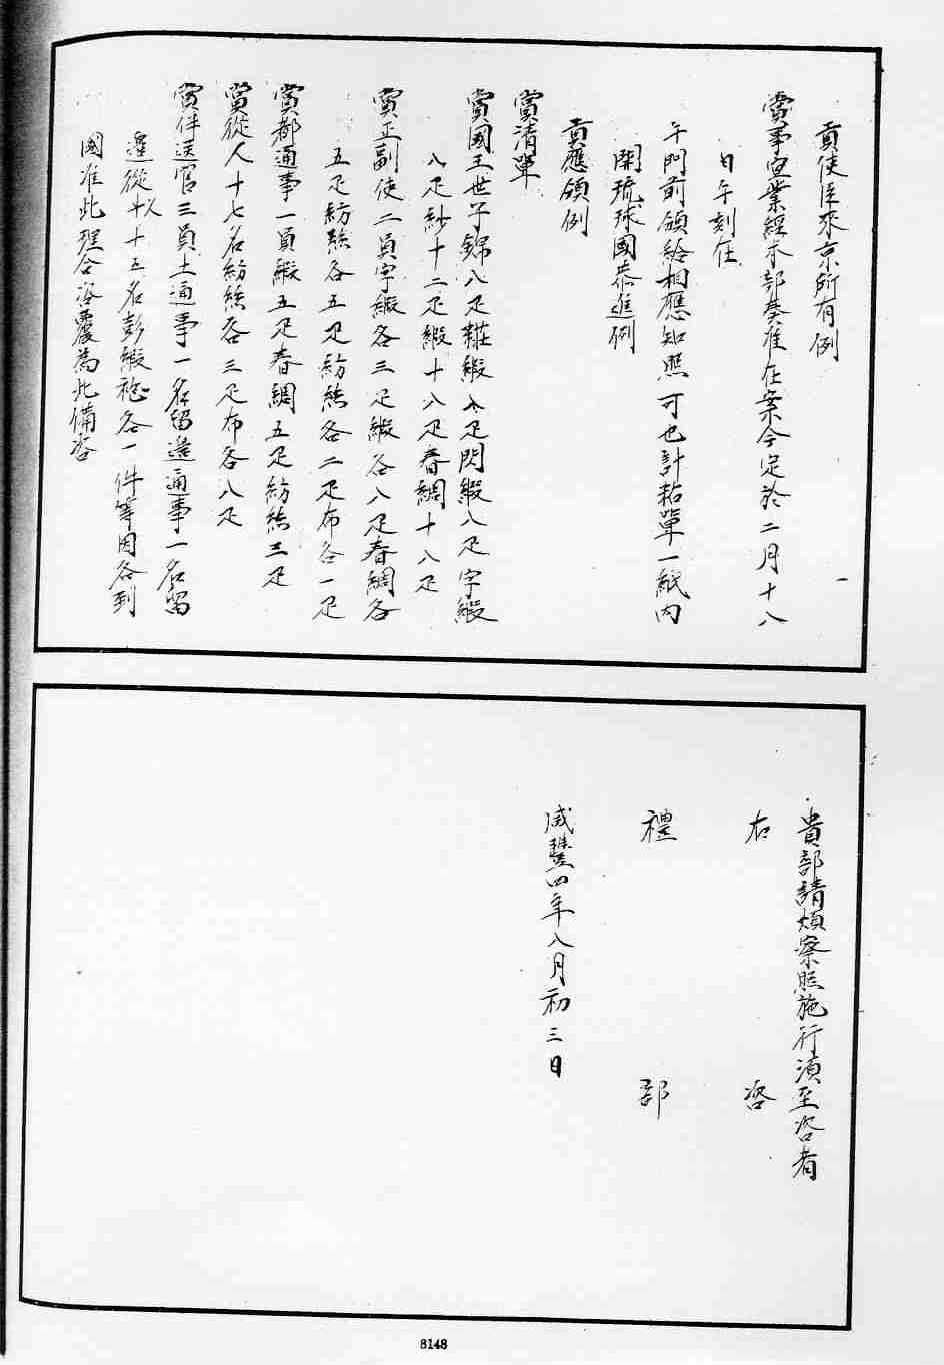 貢使臣來京所有例
賞事宜業經本部奏准在案今定於二月十八
日午刻在
午門前頒給相應知照可也計粘單一紙內
開琉球國恭進例
貢應頒例
賞清單
賞國王世子錦八疋粧緞八疋閃緞八疋字緞
八疋紗十二疋緞十八疋春綢十八疋
賞正副使二員字緞各三疋緞各八疋春綢各
五疋紡絲各五疋紡絲各二疋布各一疋
賞都通事一員緞五疋春綢五疋紡絲三疋
賞從人十七名紡絲各三疋布各八疋
賞伴送官三員土通事一名留邊通事一名留
邊從人十五名彭緞袍各一件等因各到
國准此理合咨覆為此備咨
貴部請煩察照施行須至咨者
右咨
禮部
咸豐四年八月初三日
8148